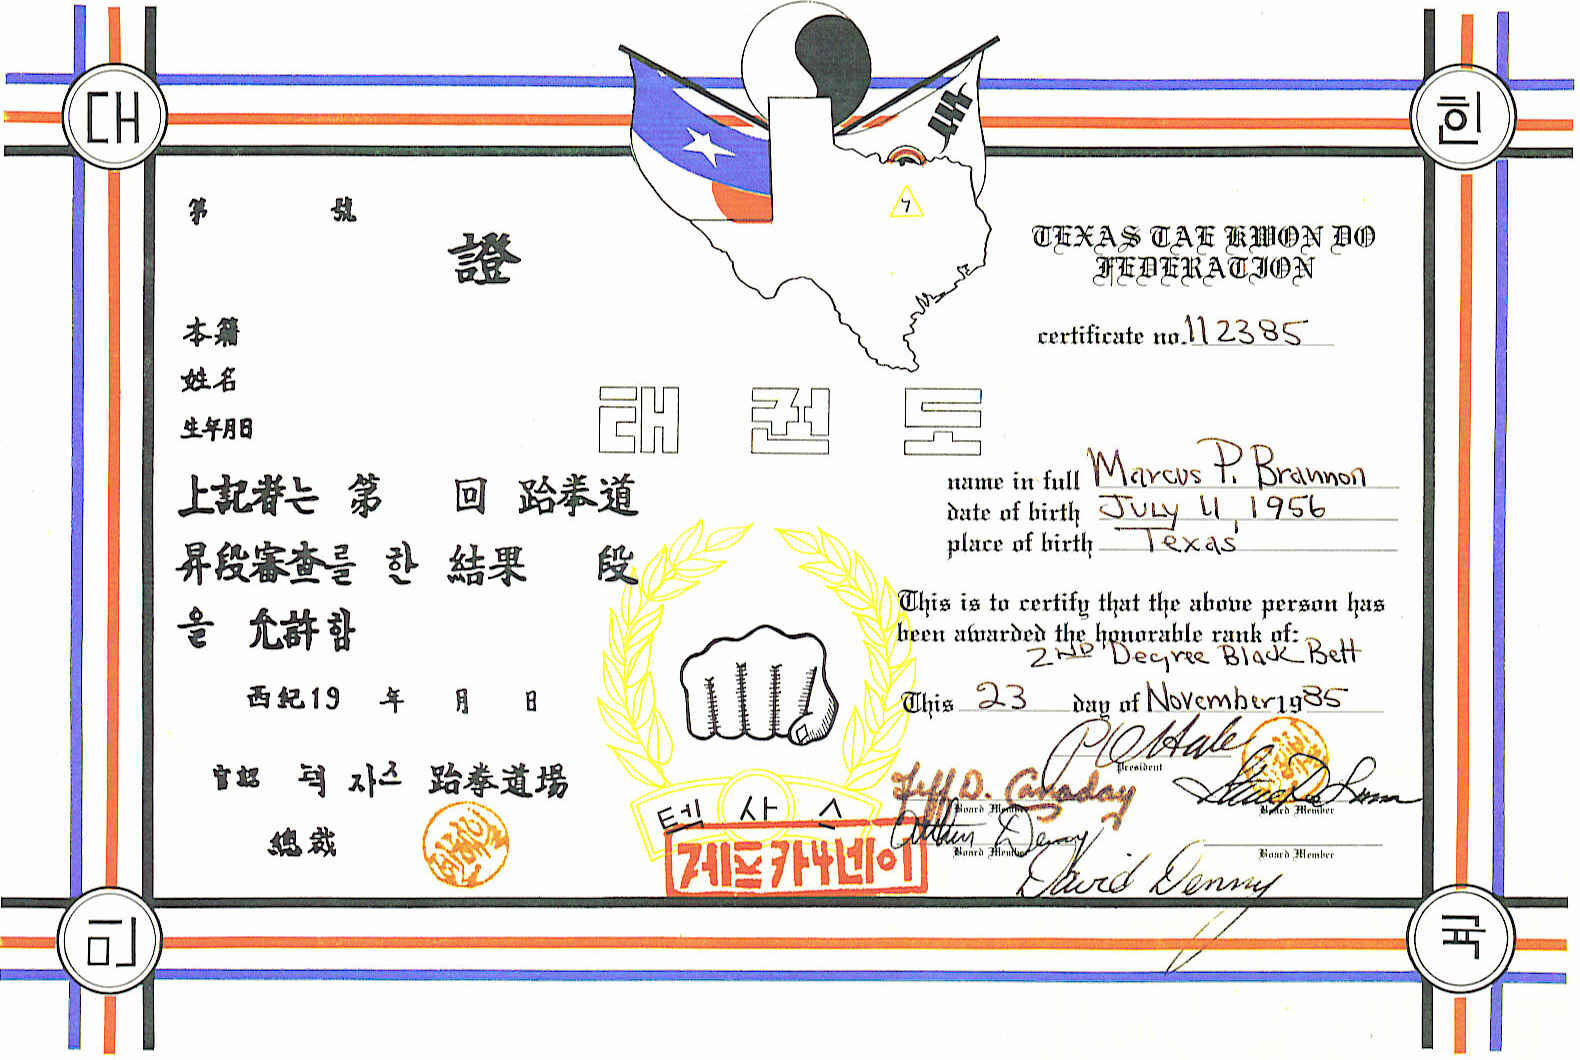 대
한
第 號
證
本籍
姓名
生年月日
上記者는 第 回 跆拳道
昇段審査를 한 結果 段
을 允許함
西紀19 年 月 日
텍사스 跆拳道場
總裁
태권도
텍사스
제프카네이
TEXAS TAE KWON DO
FEDERATION
certificate no. 112385
name in full Marcus P. Brannon
date of birth JULY 11, 1956
place of birth Texas
This is to certify that the above person has
been awarded the honorable rank of:
2ND Degree Black Belt
This 23 day of November 1985
President
Jeff D. Canaday
Board Member
Board Member
Denny
Board Member
Board Member
David Denny
미
국